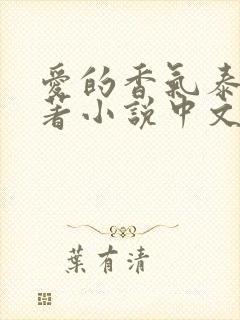 愛的香氣泰
著小說中文
葉有清